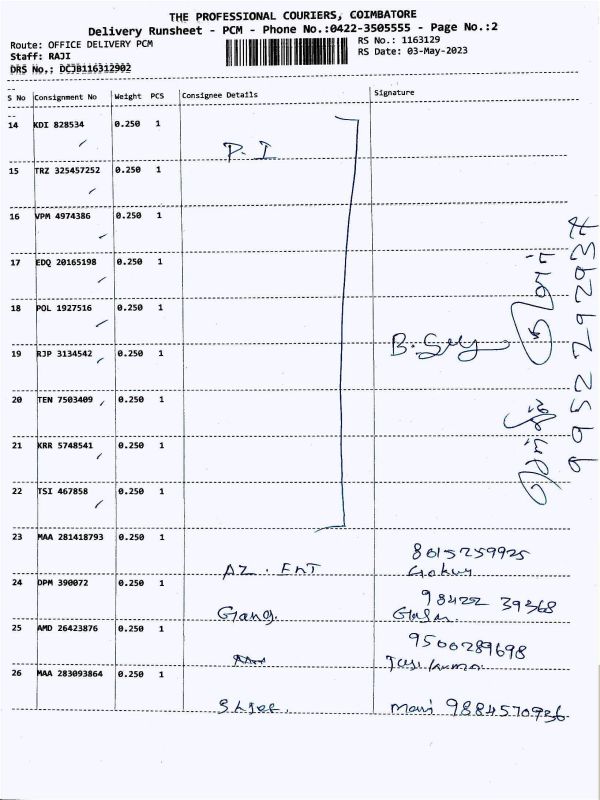 THE PROFESSIONAL COURIERS, COIMBATORE
Delivery Runsheet - PCM - Phone No.:0422-3505555 - Page No.:2
Route: OFFICE DELIVERY PCM
RS No.: 1163129
Staff: RAJI
RS Date: 03-May-2023
DRS No.: DCJB116312902
S No Consignment No Weight PCS Consignee Details Signature
14 KDI 828534 0.250 1
P. I
15 TRZ 325457252 0.250 1
16 VPM 4974386 0.250 1
17 EDQ 20165198 0.250 1
18 POL 1927516 0.250 1
19 RJP 3134542 0.250 1
20 TEN 7503409 0.250 1
21 KRR 5748541 0.250 1
22 TSI 467858 0.250 1
9952292937
23 MAA 281418793 0.250 1
8015259925
AZ. ENT
24 DPM 390072 0.250 1
98422 39368
25 AMD 26423876 0.250 1
9500289698
26 MAA 283093864 0.250 1
Mani 9884570936